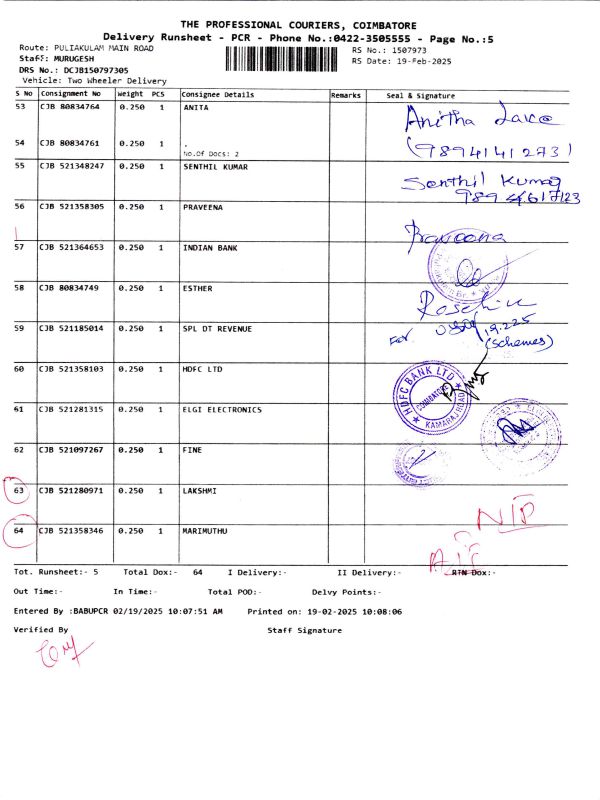 THE PROFESSIONAL COURIERS, COIMBATORE
Delivery Runsheet - PCR - Phone No.:0422-3505555 - Page No.:5
Route: PULIAKULAM MAIN ROAD
RS No.: 1507973
Staff: MURUGESH
RS Date: 19-Feb-2025
DRS No.: DCJB150797305
Vehicle: Two Wheeler Delivery
S No Consignment No Weight PCS Consignee Details Remarks Seal & Signature
53 CJB 80834764 0.250 1 ANITA
Anitha
54 CJB 80834761 0.250 1 .
No.Of Docs: 2
(9894141273)
55 CJB 521348247 0.250 1 SENTHIL KUMAR
Senthil Kumar
56 CJB 521358305 0.250 1 PRAVEENA
Praveena
57 CJB 521364653 0.250 1 INDIAN BANK
58 CJB 80834749 0.250 1 ESTHER
59 CJB 521185014 0.250 1 SPL DT REVENUE
For
(Schemes)
60 CJB 521358103 0.250 1 HDFC LTD
HDFC BANK LTD
COIMBATORE
KAMARAJ ROAD
61 CJB 521281315 0.250 1 ELGI ELECTRONICS
62 CJB 521097267 0.250 1 FINE
63 CJB 521280971 0.250 1 LAKSHMI
64 CJB 521358346 0.250 1 MARIMUTHU
Tot. Runsheet:- 5 Total Dox:- 64 I Delivery:- II Delivery:- RTN Dox:-
Out Time:- In Time:- Total POD:- Delvy Points:-
Entered By :BABUPCR 02/19/2025 10:07:51 AM Printed on: 19-02-2025 10:08:06
Verified By Staff Signature